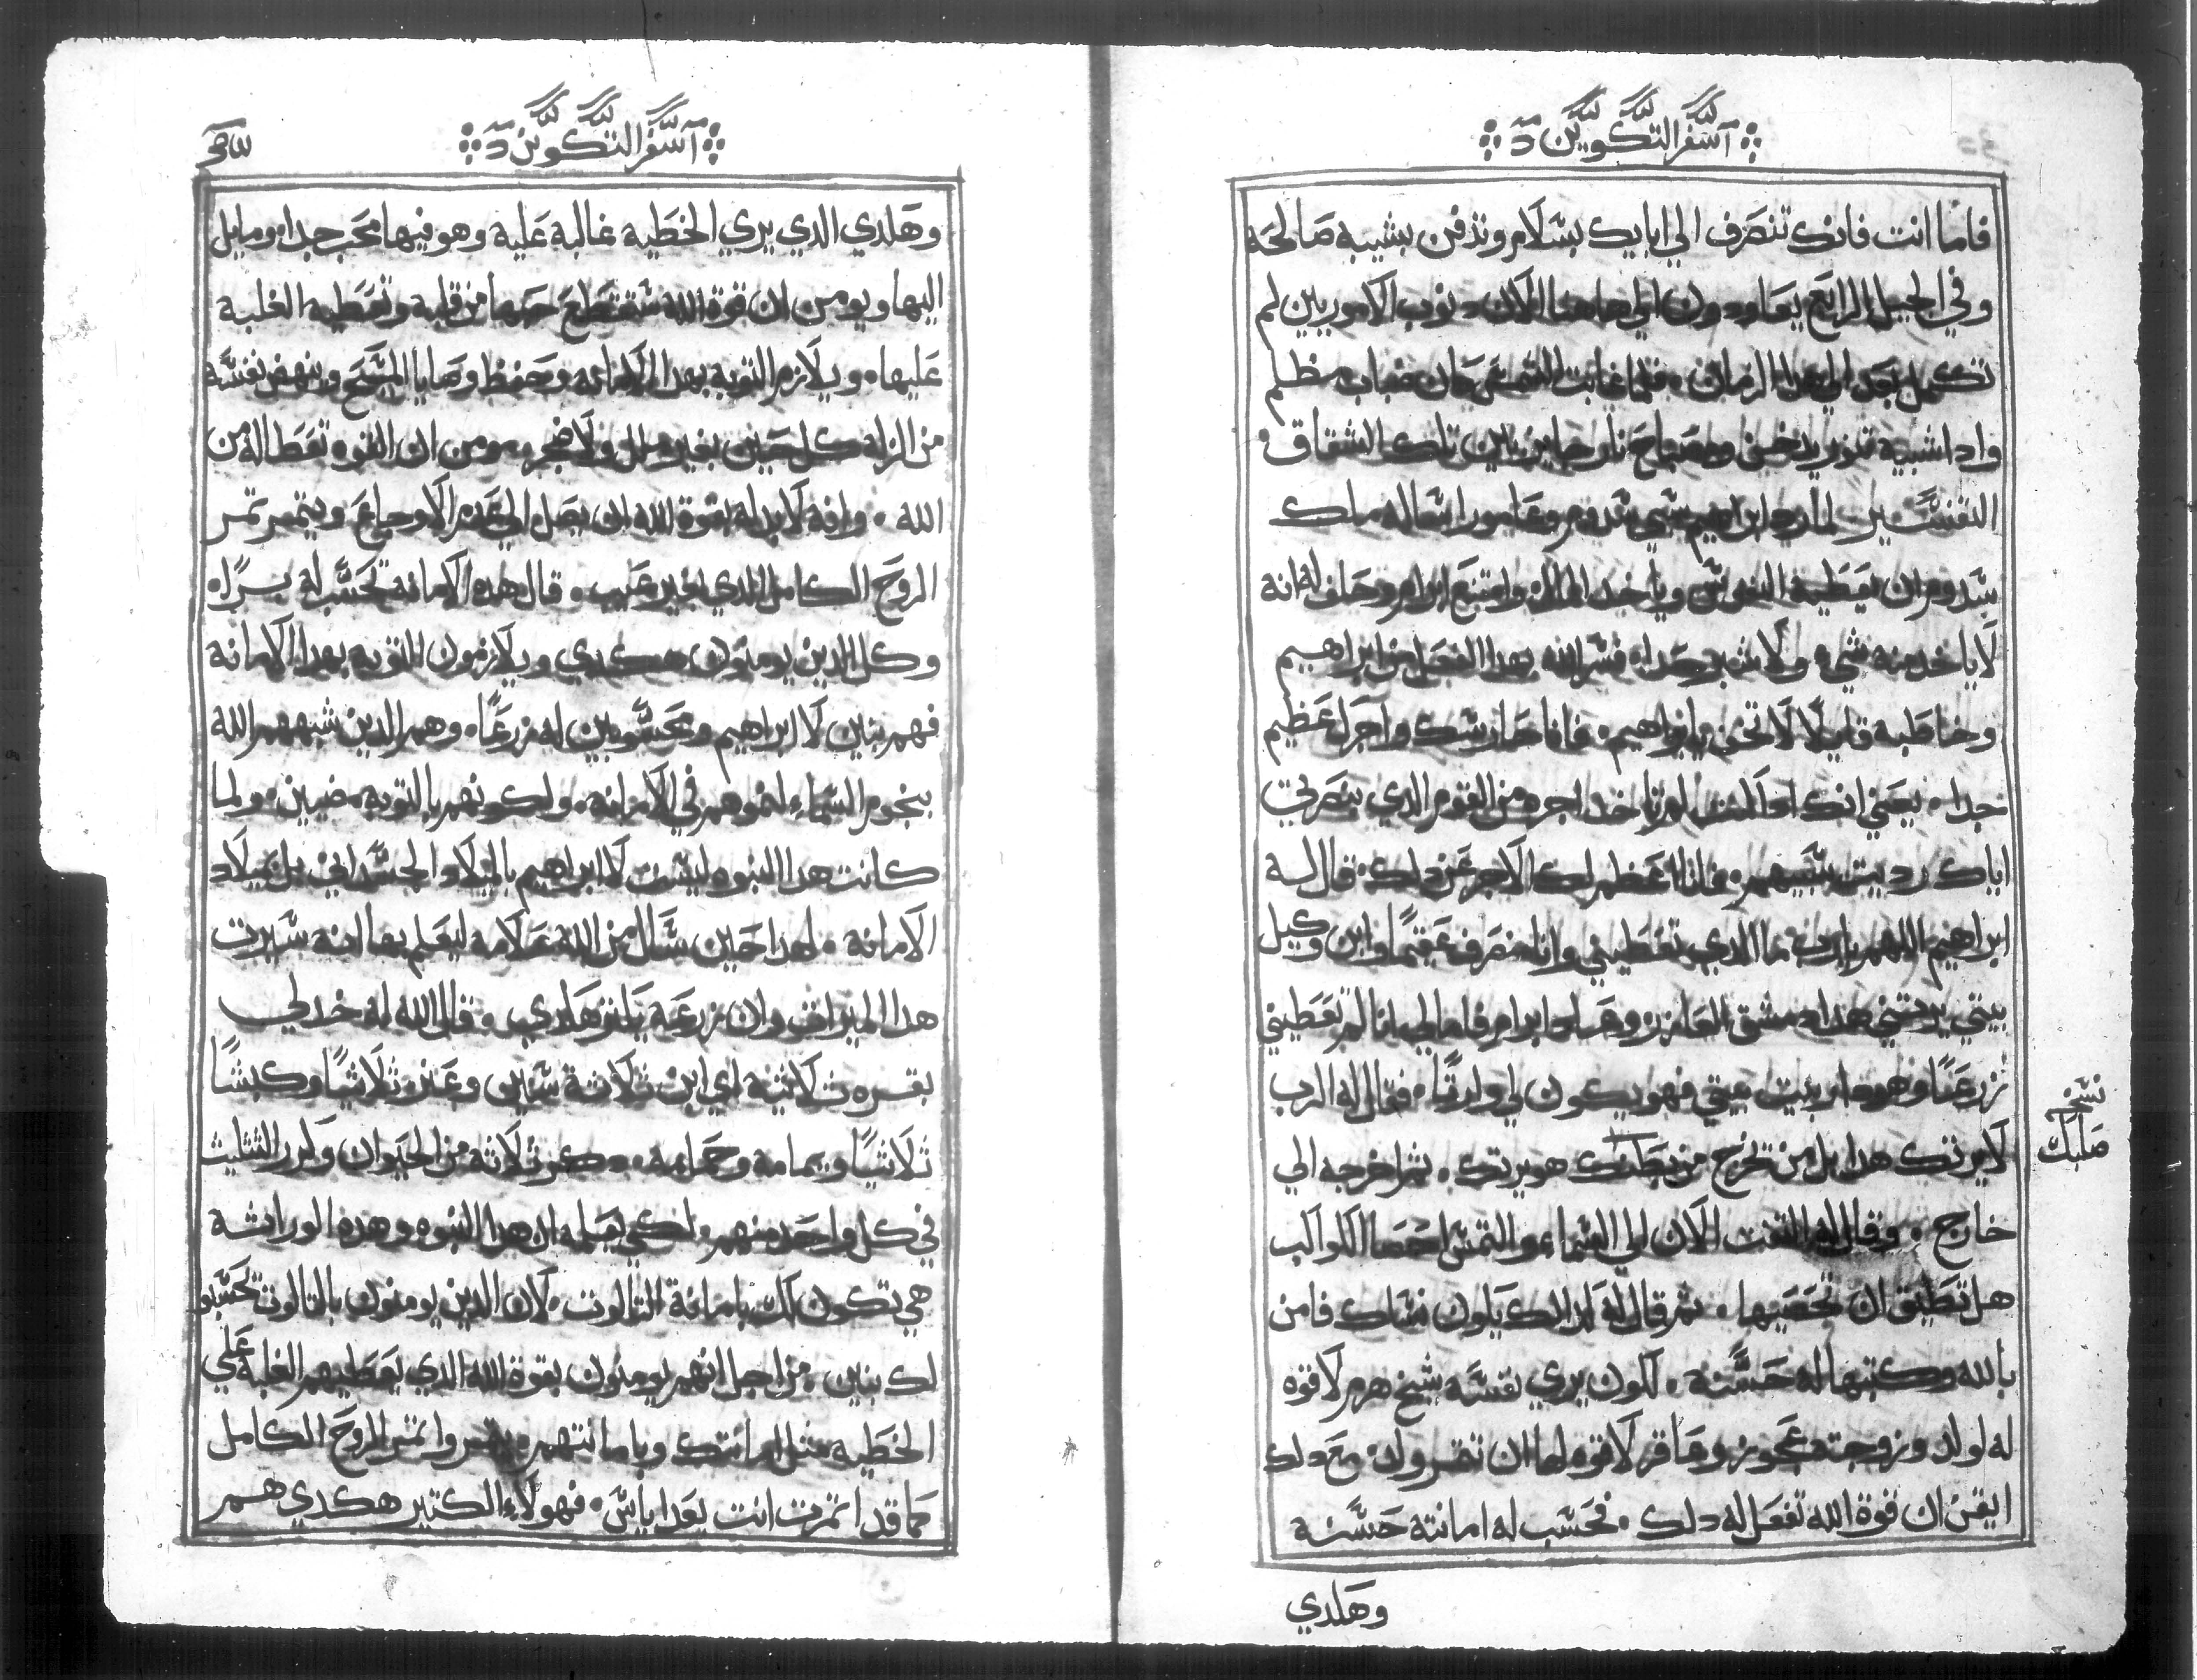 آسفر التكوين د
فاما انت فانك تنصرف الي ابايك بسلام وتدفن بشيبه صالحه
وفي الجيل الرابع يعاودون الي هاهنا لان دنوب الاموريين لم
تكمل بعد الي هدا الزمان. فلما غابت الشمس كان ضباب مظلم
وادا شبيه تنور يدخن ومصباح نار جايز بين تلك الشقاق.
التفسير لما رد ابراهيم سبي سدوم وعامورا ساله ملك
سدوم ان يعطيه النفوس وياخد المال وامتنع ابرام وحلف له انه
لا ياخد منه شيء ولا شبر حداء فسر الله بهدا الفعل من ابراهيم
وخاطبه قايلا لا تخف يا ابراهيم. فانا حارسك واجرك عظيم
جدا. يعني انك ادا كنت لم تاخد اجره من القوم الدي بنصرتي
اياك رديت سبيهم. فانا اعظم لك الاجر عن دلك. قال له
ابراهيم اللهم يارب ما الدي تعطيني وانا منصرف عقيما وابن وكيل
بيتي يرتني هدا دمشق العازر. وقال ابرام فاما لي انا لم تعطيني
زرعا وهودا ربيت بيتي فهو يكون لي وارتا. فقال له الرب
لا يرتك هدا بل من تخرج من بطنك هو يرتك. تم اخرجه الي
خارج. وقال له التفت الان الي السماء والتمس احصا الكواكب
هل تطيق ان تحصيها. تم قال له كدلك يكون نسلك فامن
بالله وكتبها له حسنة. لكون يري نفسه شيخ هرم لا قوه
له لولد وزوجته عجوز وعاقر لا قوه لها ان تتمر ولد. مع دلك
ايقن ان قوة الله تفعل له دلك. فحسب له امانته حسنة
وهلدي
نسخه
صلبك
آسفر التكوين د
وهلدي الدي يري الخطيه غالبة عليه وهو فيها محب جدا. ومايل
اليها ويومن ان قوة الله ستقطع حبها من قلبه وتعطيه الغلبه
عليها. ويلازم التوبه بهدا الامانه وحفظ وصايا المسيح وينهض نفسه
من الزله كل حين بغير ملل ولا ضجر. مومن ان القوه تعطا له من
الله. وانه لابد له بقوة الله ان يصل الي عدم الاوجاع ويتمر تمر
الروح الكامل الدي بغير عيب. قال هده الامانه تحسب له برا.
وكل الدين يومنون هكدي ويلازمون التوبه بهدا الامانه
فهم بنين لابراهيم ومحسوبين له زرعا. وهم الدين شبههم الله
بنجوم السماء لنموهم في الامانه. ولكونهم بالتوبه مضيين. ولما
كانت هدا البنوه ليست لابراهيم بالميلاد الجسداني بل بميلاد
الامانه. لهدا حين سال من الله علامه ليعلم بها انه سيرت
هدا الميرات وان زرعه يكتر هكدي. قال الله له خد لي
بقره تلاتيه اي ابن تلاتة سنين وعنز تلاتيا وكبشا
تلاتيا ويمامه وحمامه. دكر تلاته من الحيوان وكرر التتليت
في كل واحده منهم. لكي يعلمه ان هدا البنوه وهده الوراتة
هي تكون لك بامانة التالوت. لان الدين يومنون بالتالوت تحسبو
لك بنين. من اجل انهم يومنون بقوة الله الدي يعطيهم الغلبه علي
الخطيه متل امانتك وبامانتهم يتمروا تمر الروح الكامل
كما قد اتمرت انت بعد اياس. فهولاء الكتير هكدي هم